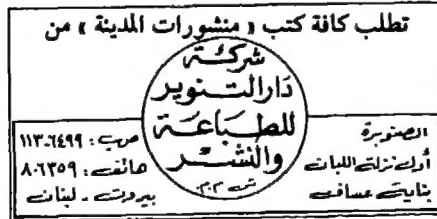 تطلب كافة كتب « منشورات المدينة » من
شركة
دار التنوير
للطباعة
والنشر
ش م.م
الصنوبرة
أول نزلة اللبان
بناية عساف
ص.ب : ٦٤٩٩-١١٣
هاتف : ٨٠٦٣٥٩
بيروت - لبنان